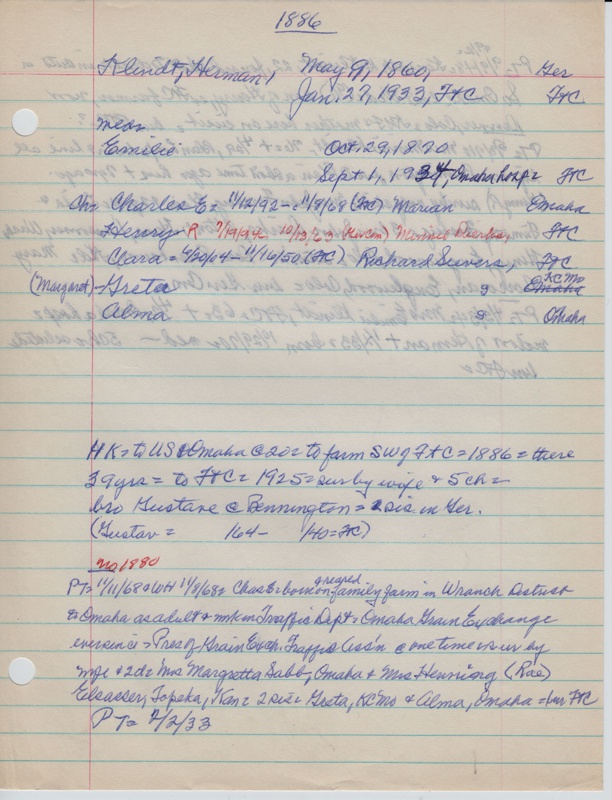 1886
Klindt, Herman, May 9, 1860, Ger
Jan. 27, 1933, FtC FtC
mcas
Emilie Oct. 29, 1870
Sept 1, 1934, Omaha hosp = FtC
Ch= Charles E = 11/12/92 - 11/8/68 (FtC) Marian Omaha
Henry - R 7/19/94 10/13/63 (Hi Cem) Minnie FtC
Clara = 4/20/04 - 11/16/50 (FtC) Richard Sievers, FtC
(Margaret) - Greta 9 Omaha KC Mo
Alma 9 Omaha
HK = to US & Omaha @ 20 = to farm SW of FtC = 1886 = there
39 yrs = to FtC = 1925 = sur by wife & 5 ch =
bro Gustave @ Bennington = sis in Ger.
(Gustav = 164- 1/40 = FtC)
no 1880
PT = 11/11/68 & WH 11/8/68 = Chas E = born on & reared family farm in Wranch District
& Omaha as adult & mkm Traffic Dept = Omaha Grain Exchange
ever since = Pres of Grain Exch. Traffic Ass'n @ one time = sur by
wife & 2d = Mrs Margretta Sabb, Omaha & Mrs Henning (Rae)
Elsasser, Topeka, Kan = 2 sis = Greta, KC Mo & Alma, Omaha = bur FtC
PT = 2/2/33